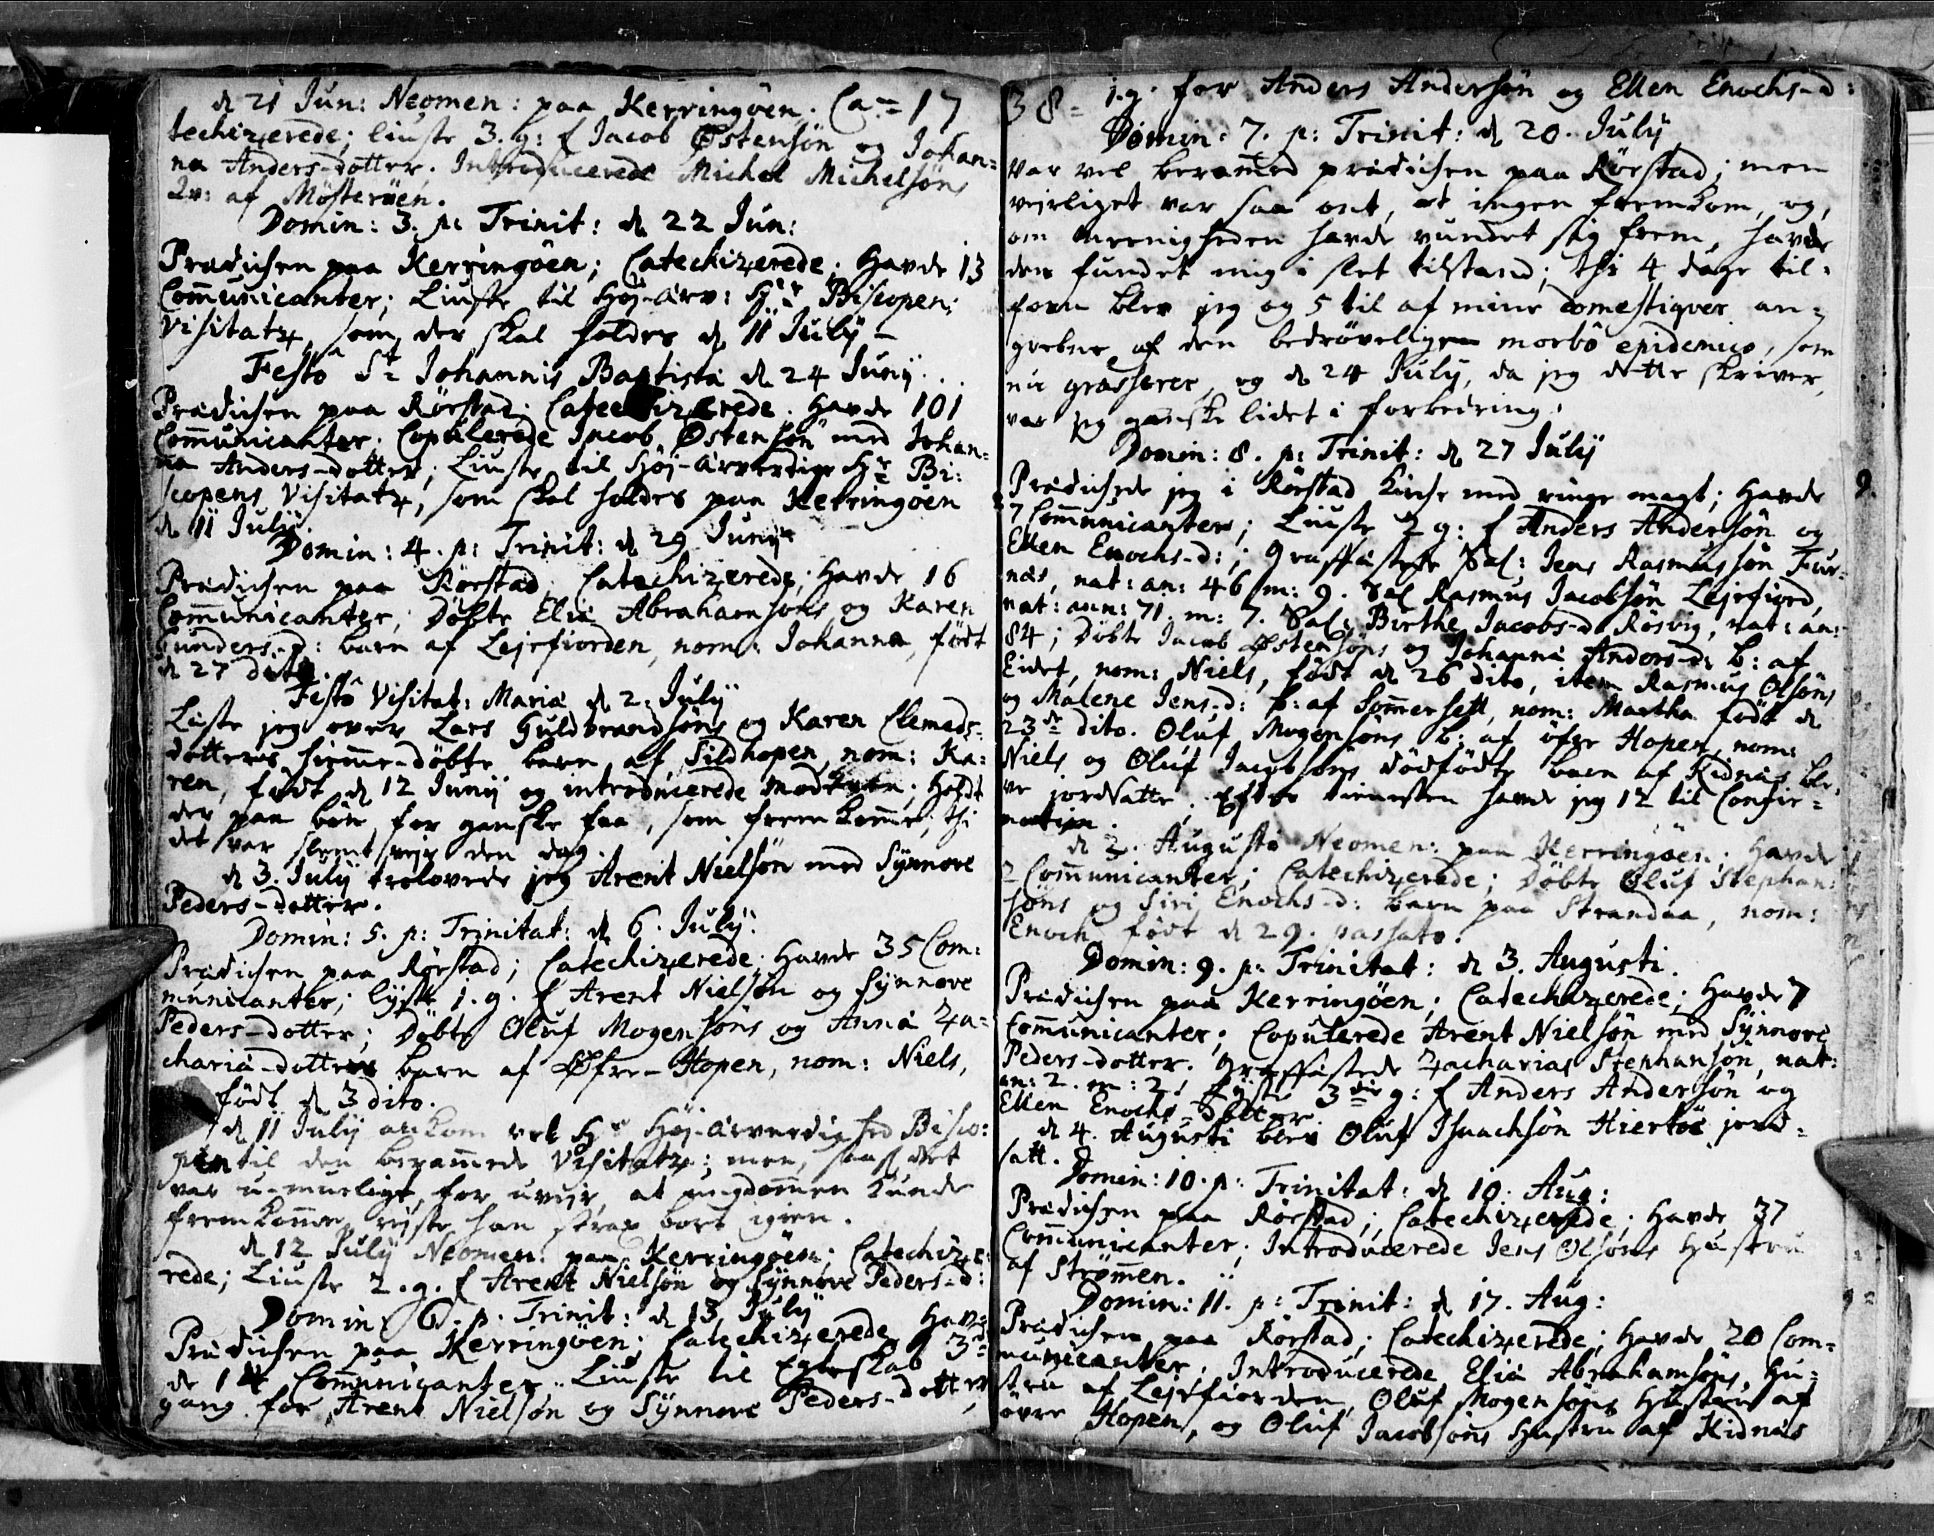 d. 21 Jun: Neomen: paa Kerringöen. Ca= 17
techizerede; liuste 3. g: f Jacob Østensön og Johan=
na Anders-dotter. Introducerede Michel Michelsöns
Qv: af Mösteröen.
Domin: 3. p: Trinit: d. 22 Jun:
Prædichen paa Kerringöen; Catechizerede. Havde 13
Communicanter; Liuste til Höj-ærv: Hr Biscopens
Visitatz, som der skal holdes d. 11 July
Festô St Johannis Baptistæ d. 24 Junij.
Prædichen paa Rörstad. Catechizerede. Havde 101
Communicanter. Copulerede Jacob Østensön med Johan=
na Anders-dotter; Liuste til Höj-ærverdige Hr Bi:
scopens Visitatz, som skal holdes paa Kerringöen
d. 11 July.
Domin: 4. p: Trinit: d. 29 Junij
Prædichen paa Rörstad. Catechizerede; Havde 16
Communicanter; Döbte Eliæ Abrahamsöns og Karen
Gunders-d: barn af Lejrfiorden, nom: Johanna, födt
d. 27 dito.
Festô Visitat: Mariæ d. 2. July
Liuste jeg over Lars Guldbrandsöns og Karen Clemeds-
dotters hiemme-döbte barn af Sildhopen, nom: Ka:
ren, födt d. 12 Junij og introducerede Moderen; Holdt
der paa bön for ganske faa, som fremkomme; thi
det var slemt vejr den dag.
d. 3. July trolovede jeg Arent Nielsön med Synnove
Peders-dotter.
Domin: 5. p: Trinitat: d. 6. July:
Prædichen paa Rörstad; Catechizerede. Havde 35 Com:
municanter; lyste 1. g. f Arent Nielsön og Synnove
Peders-dotter; Döbte Oluf Mogensöns og Anna Za=
chariæ-dotters barn af Øfre-Hopen, nom: Niels,
födt d. 3 dito.
d. 11 July ankom vel Hs Höj-ærverdighed Bisco:
pen til den berammede Visitatz; men, saasom det
var u-mueligt, for uvejr, at ungdommen kunde
fremkomme, rejste han strax bort igien.
d. 12 July Neomen: paa Kerringöen; Catechize:
rede; Liuste 2. g. f Arent Nielsön og Synnove Peders-d:
Domin: 6. p. Trinit: d. 13. July
Prædichen paa Kerringöen; Catechizerede. Hav=
de 14 Communicanter. Liuste til Egteskab 3d
gang for Arent Nielsön og Synnove Peders-dotter,
38= 1. g. for Anders Andersön og Ellen Enochs-d:
Domin: 7. p: Trinit: d. 20. July
var vel berammed prædichen paa Rörstad; men
vejrliget var saa ont, at ingen fremkom, og,
om meenigheden havde vundet sig frem, havde
den fundet mig i slet tilstand; thi 4 dage til-
forn blev jeg og 5 til af mine domestiqver an=
grebne af den bedröveligen morbô epidemico, som
nu grasserer, og d. 24 July, da jeg dette skriver,
var jeg ganske lidet i forbedring.
Domin: 8. p: Trinit: d. 27 July
Prædichede jeg i Rörstad Kirche med ringe magt; Havde 9.
7 Communicanter; Liuste 2 g: f Anders Andersön og
Ellen Enochs-d:; Graffæstede Sal: Jens Rasmussön Fur-
næs, nat: an: 46 m: 9. Sal Rasmus Jacobsön Lejrfiord,
nat: ann: 71, m: 7. Sal: Birthe Jacobs-d Rösvig, nat: an:
84; Döbte Jacob Østensöns og Johanna Anders-d: b: af
Eidet, nom: Niels, födt d. 26 dito, item Rasmus Olsöns
og Malene Jens-d: b: af Sommersett, nom: Martha födt d.
23de dito. Oluf Mogensöns b: af öfre Hopen, nom:
Niels og Oluf Jacobsöns dödfödte barn af Kidnæs ble:
ve jordsatte. Efter tienesten havde jeg 12 til Confir=
mation.
d. 2. Augusti Neomen: paa Kerringöen; Havde
2 Communicanter; Catechizerede; Döbte Oluf Stephan:
söns og Siri Enochs-d: barn paa Strandaa, nom:
Enoch födt d. 29. passato.
Domin: 9. p: Trinitat: d. 3. Augusti.
Prædichen paa Kerringöen; Catechizerede; Havde 7
Communicanter; Copulerede Arent Nielsön med Synnove
Peders-dotter. Graffæstede Zacharias Stephansön, nat:
an: 2. m: 2; Lyste 3die g: f Anders Andersön og
Ellen Enochs-dotter
d. 4. Augusti blev Oluf Isaachsön Hiertöe jord=
satt.
Domin: 10. p: Trinitat: d. 10. Aug:
Prædichen paa Rörstad; Catechizerede; Havde 37
Communicanter; Introducerede Jens Olsöns Hustru
af Strömmen.
Domin: 11. p: Trinit: d. 17. Aug:
Prædichen paa Rörstad; Catechizerede; Havde 20 Com=
municanter. Introducerede Eliæ Abrahamsöns Hu=
stru af Lejrfiorden, Oluf Mogensöns Hustru af
övre Hopen, og Oluf Jacobsöns Hustru af Kidnæs